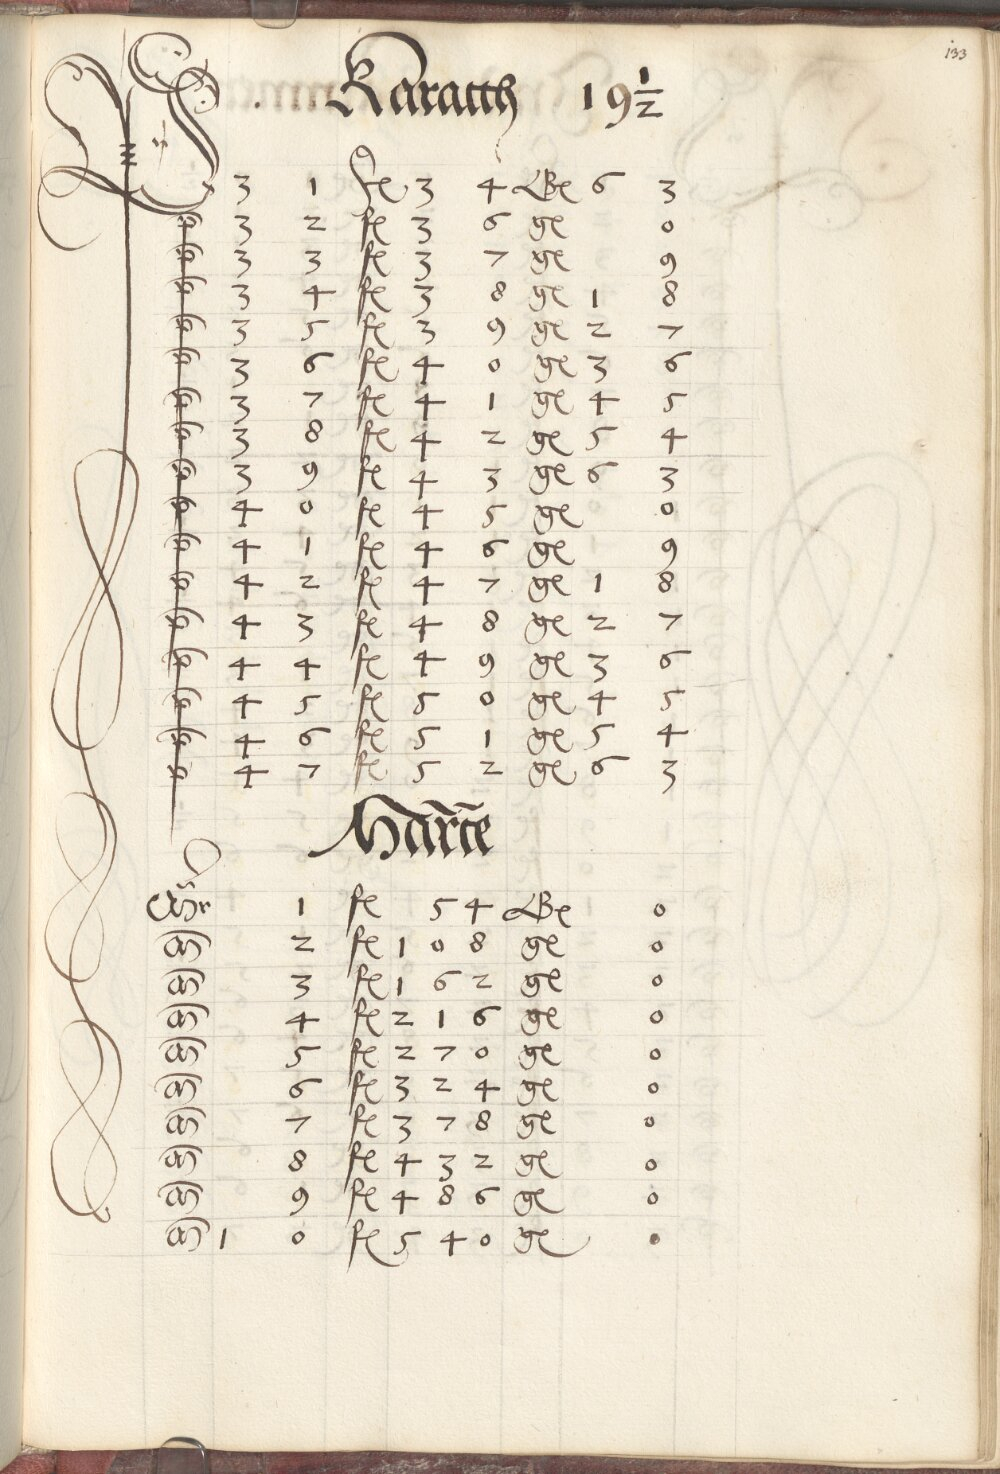 133
Karatth 19 1/2
3 1 fl 3 4 Gl 6 3
3 2 fl 3 6 gl 0
3 3 fl 3 7 gl 9
3 4 fl 3 8 gl 1 8
3 5 fl 3 9 gl 2 7
3 6 fl 4 0 gl 3 6
3 7 fl 4 1 gl 4 5
3 8 fl 4 2 gl 5 4
3 9 fl 4 3 gl 6 3
4 0 fl 4 5 gl 0
4 1 fl 4 6 gl 9
4 2 fl 4 7 gl 1 8
4 3 fl 4 8 gl 2 7
4 4 fl 4 9 gl 3 6
4 5 fl 5 0 gl 4 5
4 6 fl 5 1 gl 5 4
4 7 fl 5 2 gl 6 3
1 fl 5 4 Gl 0
2 fl 1 0 8 gl 0
3 fl 1 6 2 gl 0
4 fl 2 1 6 gl 0
5 fl 2 7 0 gl 0
6 fl 3 2 4 gl 0
7 fl 3 7 8 gl 0
8 fl 4 3 2 gl 0
9 fl 4 8 6 gl 0
1 0 fl 5 4 0 gl 0